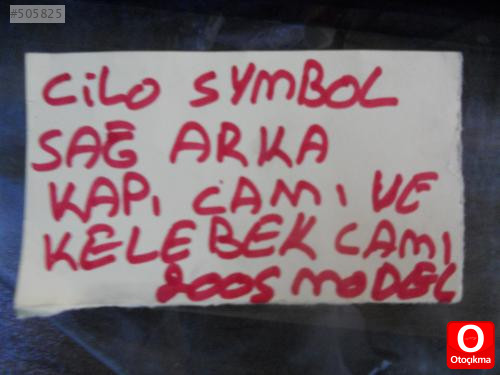 #505825
CiLO SYMBOL
SAĞ ARKA
KAPI CAMI VE
KELEBEK CAMI
2005 MODEL
O
Otoçıkma